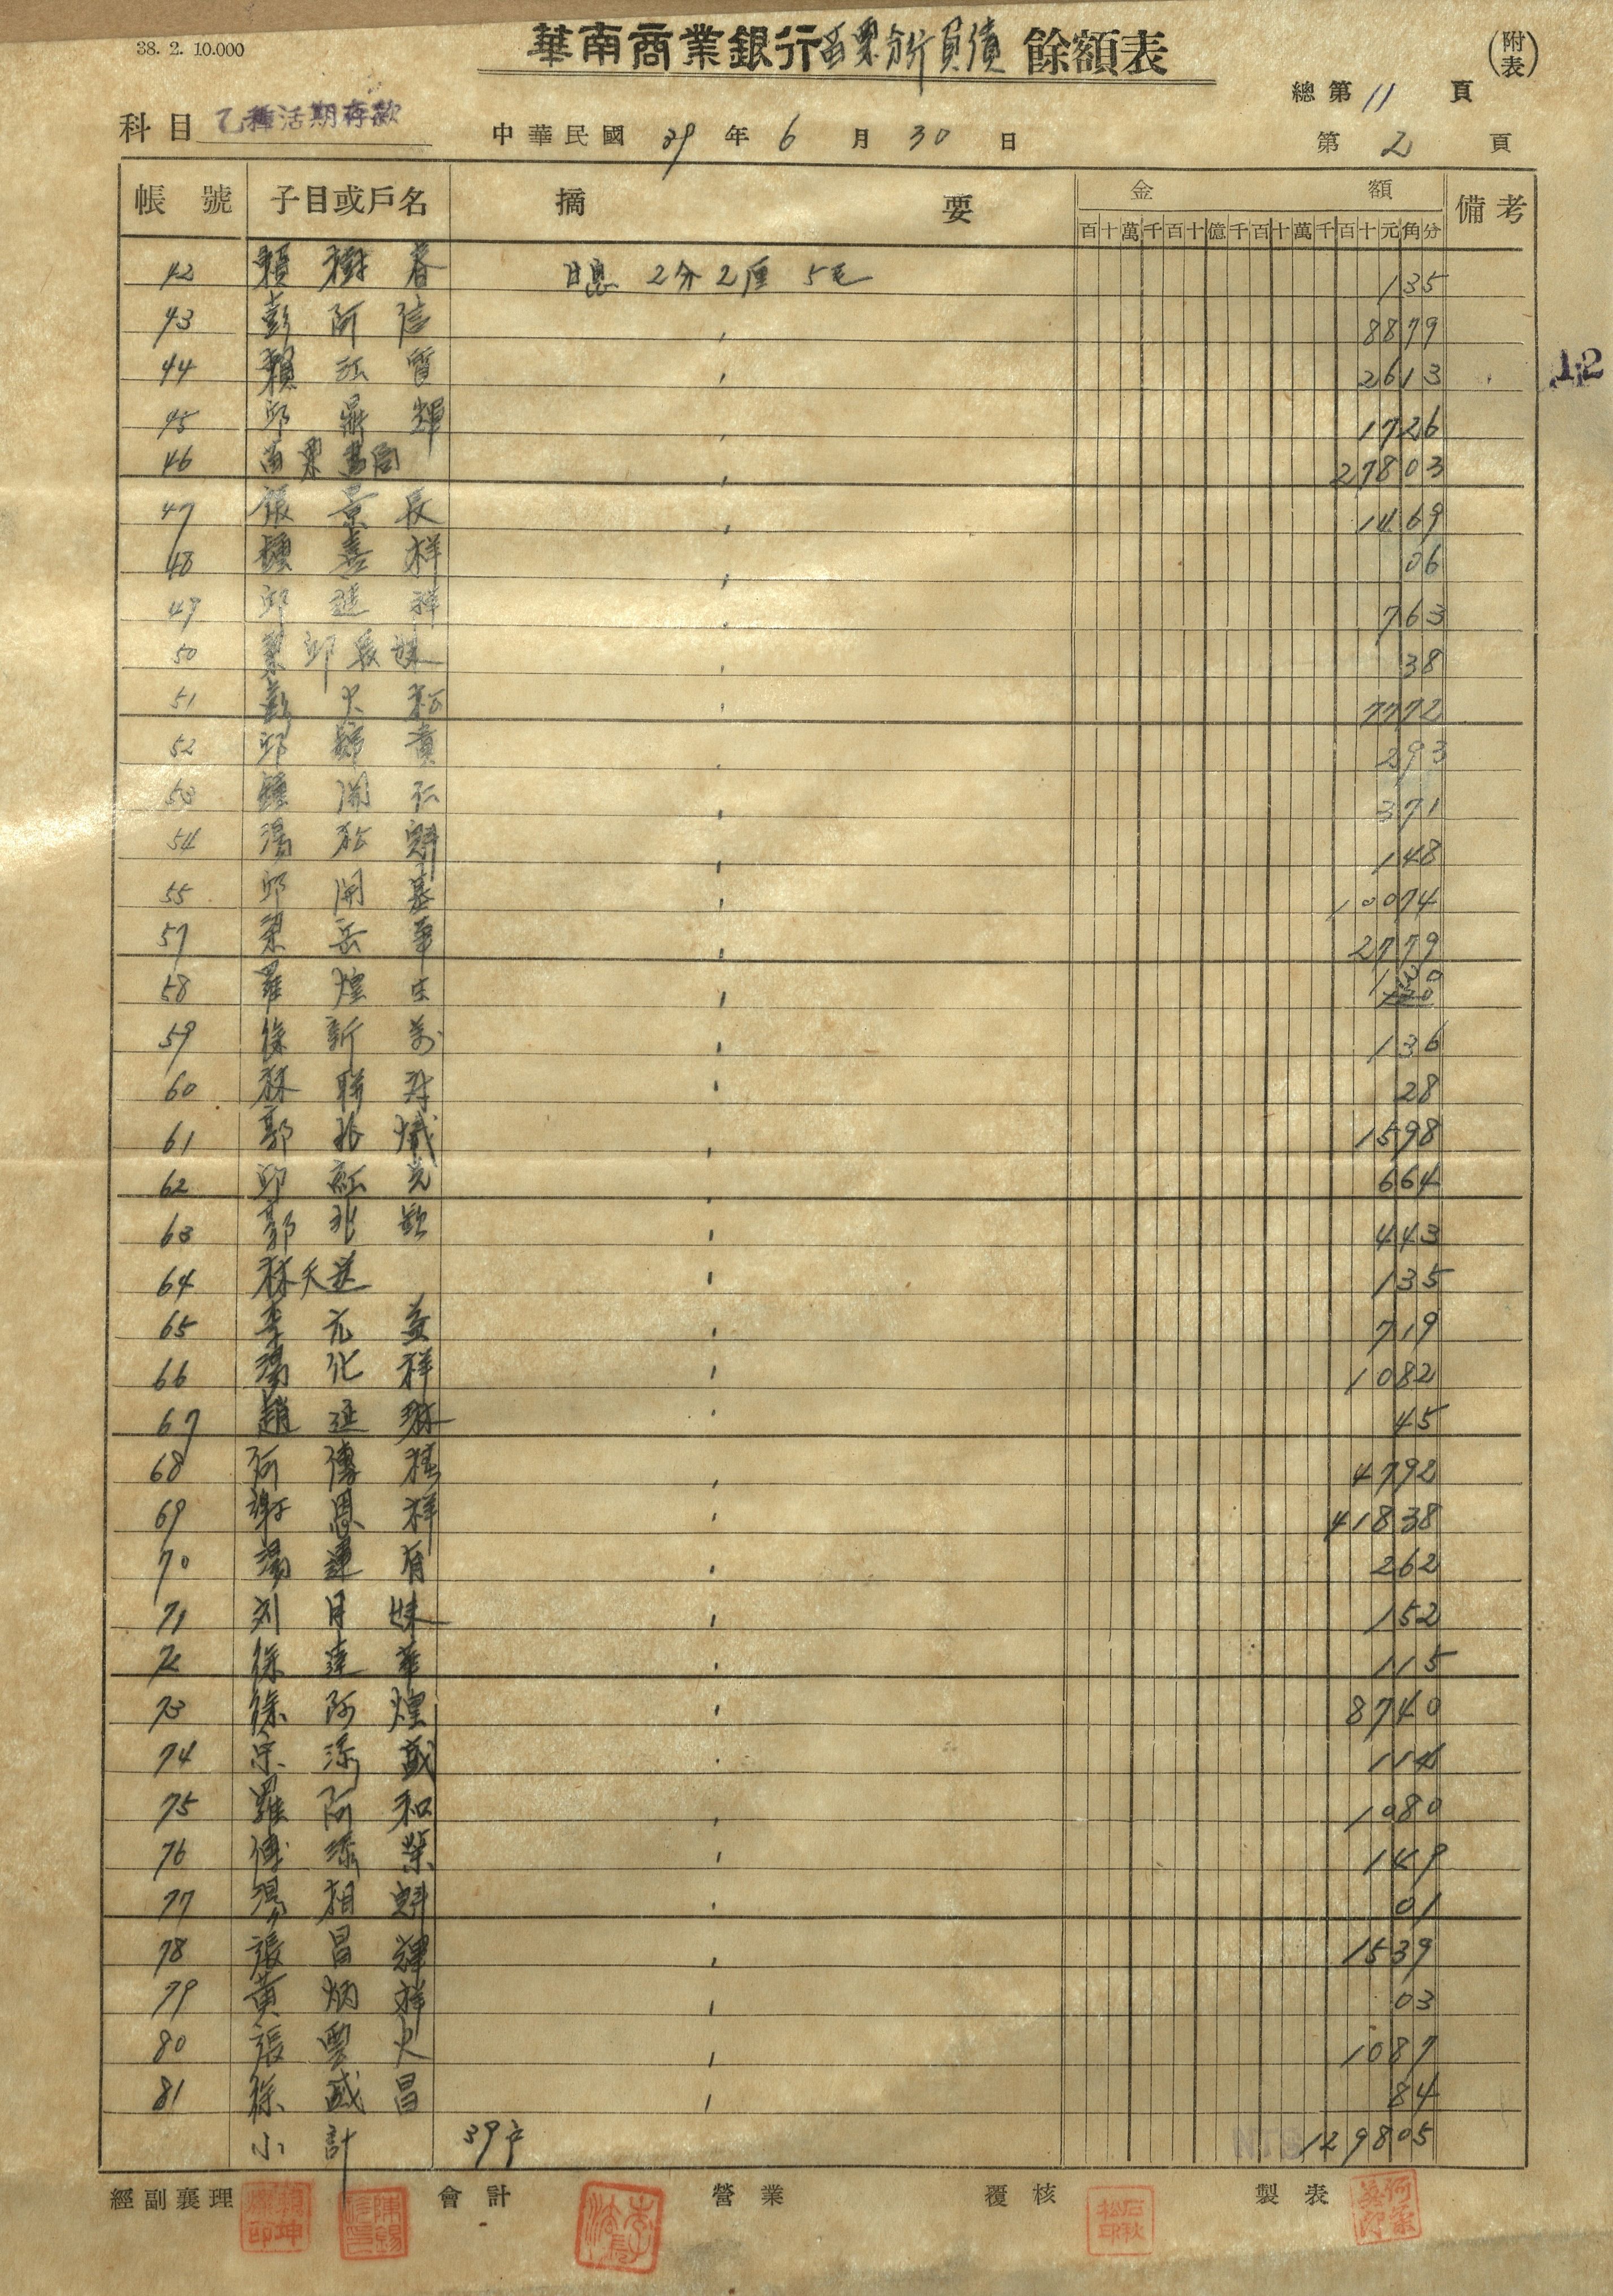 38. 2. 10.000
華南商業銀行苗栗分行負債餘額表
(附表)
總第11頁
科目 乙種活期存款
中華民國39年6月30日
第2頁
帳號 子目或戶名 摘要 金額 備考
百十萬千百十億千百十萬千百十元角分
42 賴樹春 日息 2分2厘5毛 135
43 彭阿信 〃 8879
44 賴 〃 2613
12
45 邱鼎輝 〃 1726
46 苗栗書局 〃 27803
47 張景長 〃 1469
48 鍾喜祥 〃 06
49 邱 祥 〃 763
50 葉邱 妹 〃 38
51 彭火松 〃 7772
52 邱 貴 〃 293
53 鍾開仁 〃 371
54 湯松魁 〃 148
55 邱開基 〃 10074
57 梁岳 〃 2779
58 羅煌 〃 130
59 徐新 〃 136
60 林聯 〃 28
61 郭兆熾 〃 1598
62 邱 〃 664
63 郭兆 〃 443
64 林天送 〃 135
65 李元益 〃 719
66 湯化祥 〃 1082
67 趙廷琳 〃 45
68 何傳 〃 4792
69 謝恩祥 〃 41838
70 湯運有 〃 262
71 刘月妹 〃 152
72 徐達華 〃 115
73 徐阿煌 〃 8740
74 宋添盛 〃 114
75 羅阿和 〃 1080
76 傅添榮 〃 149
77 湯相魁 〃 01
78 張昌輝 〃 1539
79 黃炳祥 〃 03
80 張雲火 〃 1087
81 徐盛昌 〃 84
小計 39戶 129805
經副襄理 會計 營業 覆核 製表